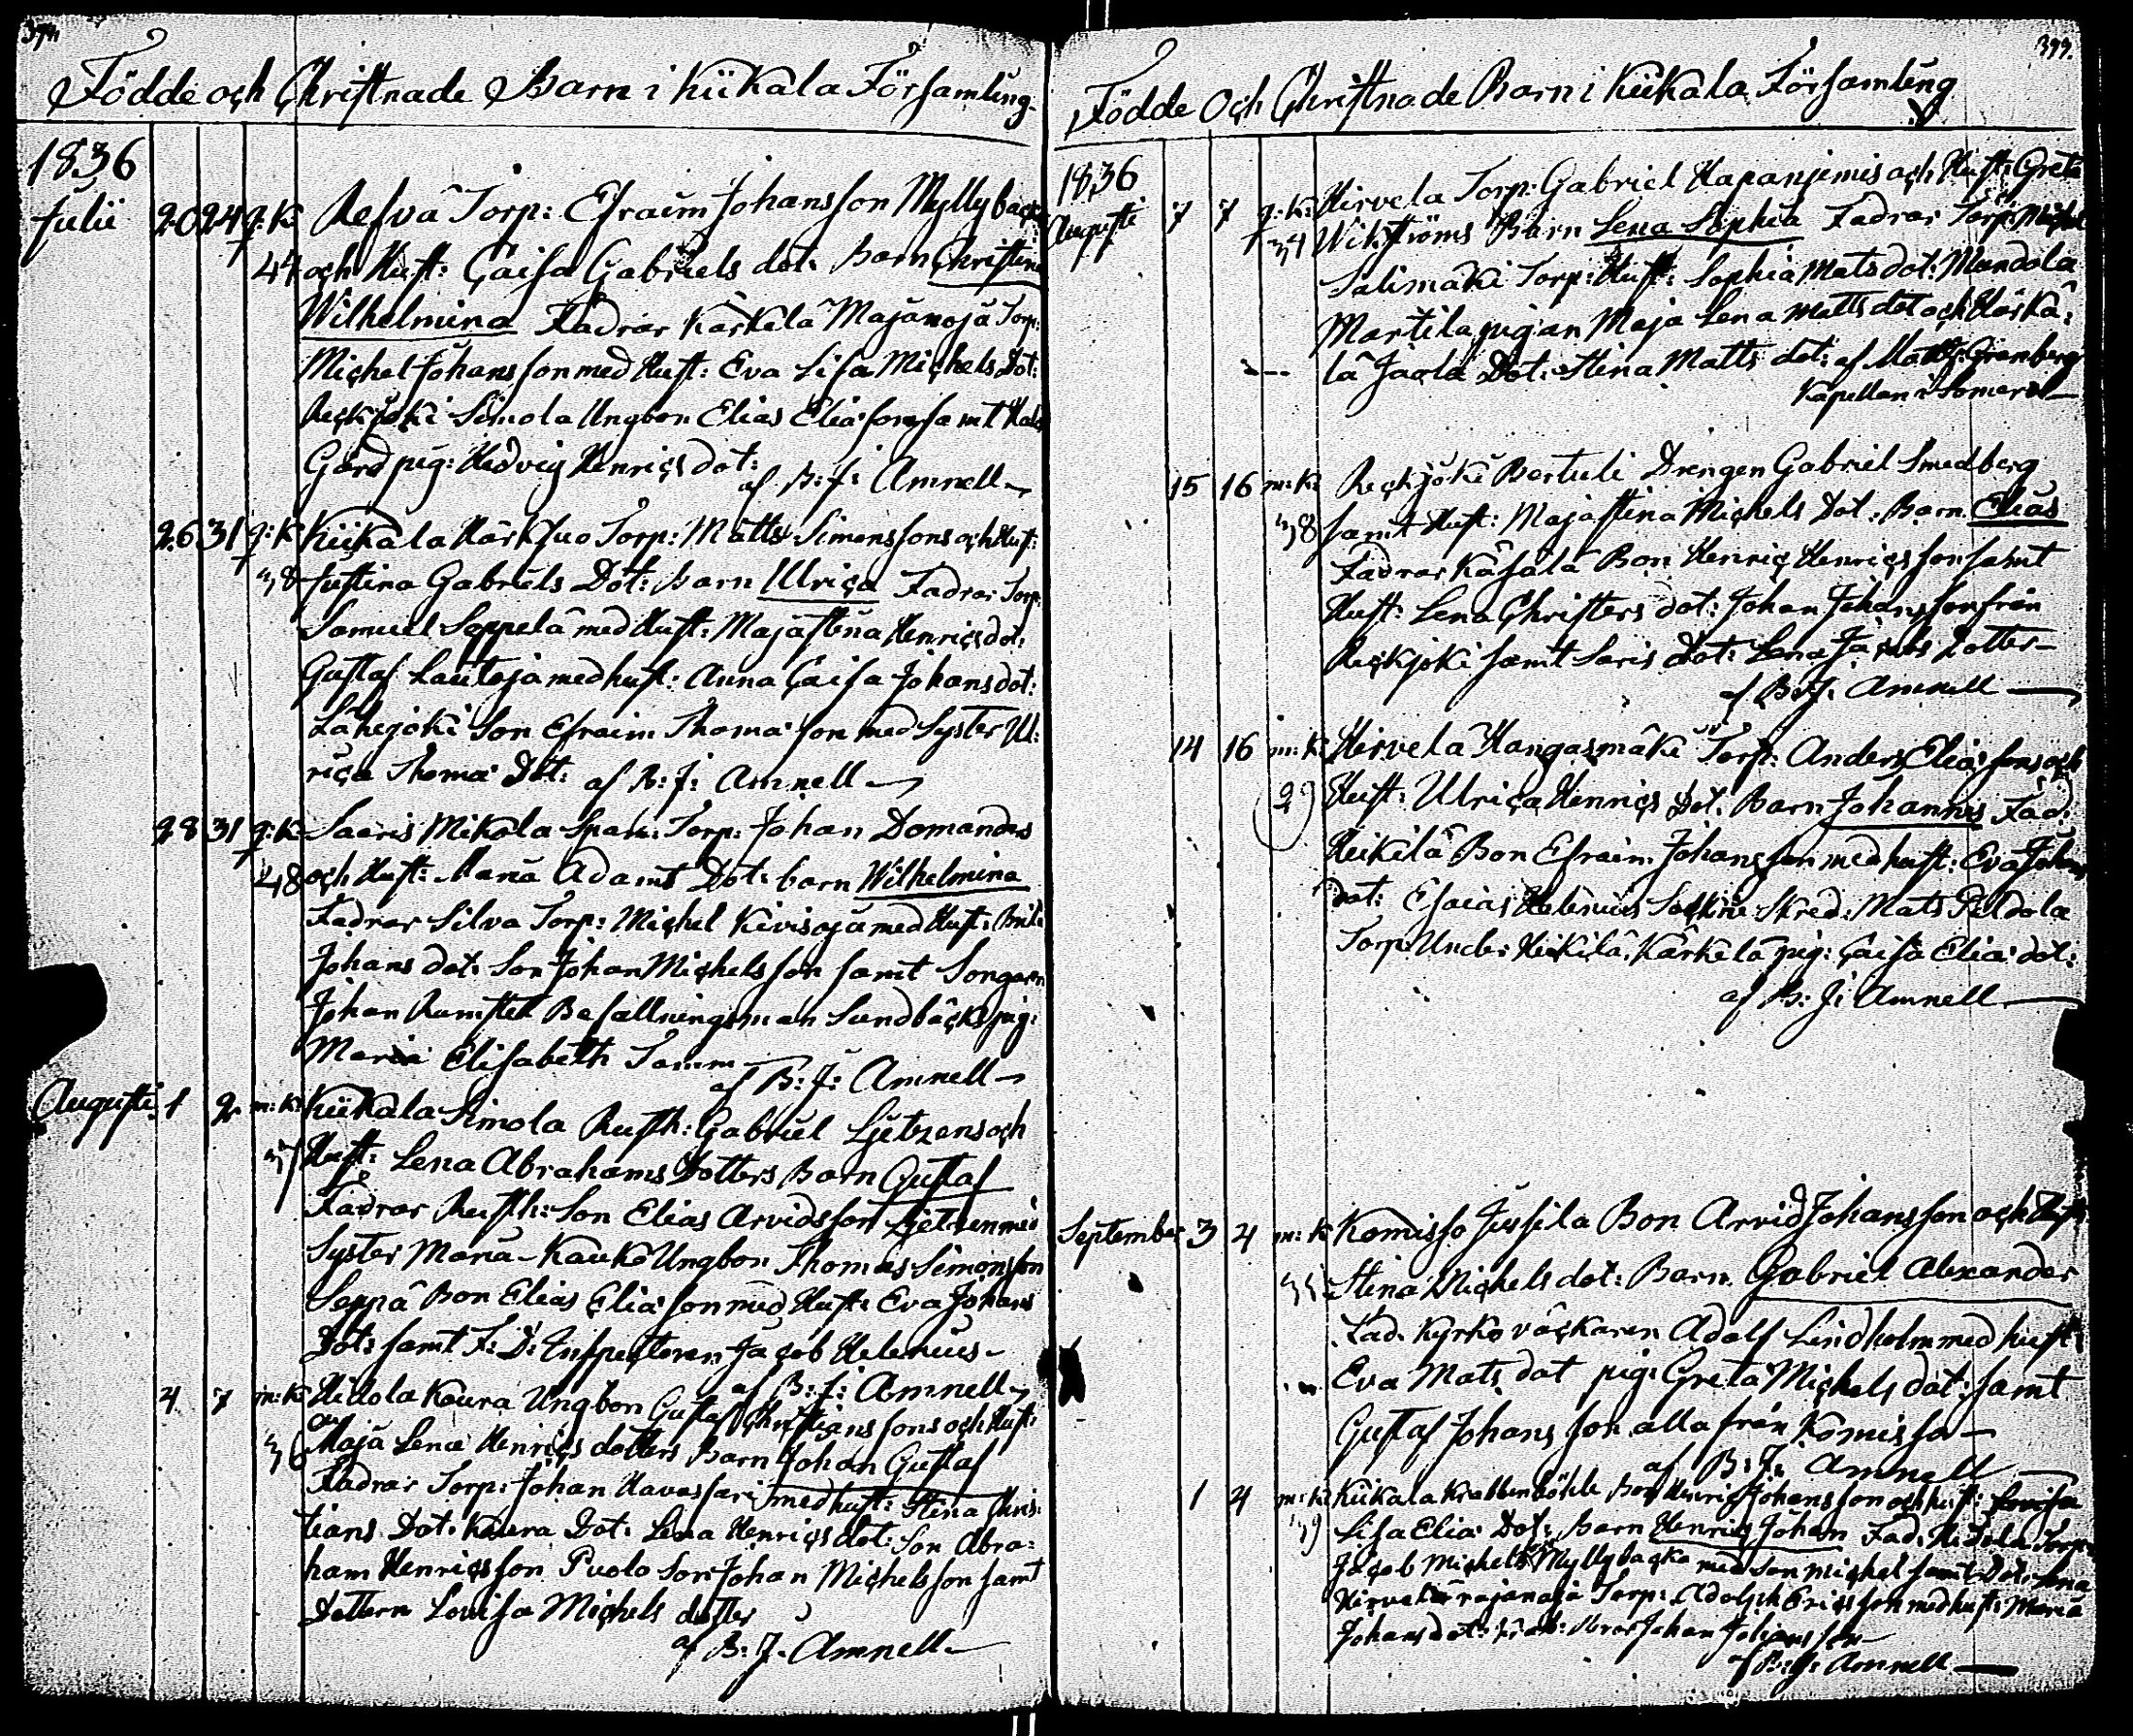 Födde och Christnade Barn i Kiikala Församling.
1836
Julii 20 24 q: K Refvä Torp: Efraim Johansson Myllybacka
44 och Hust: Caisa Gabriels dot: Barn Christina
Wilhelmina Fadrar Kärkelä Majanoja Torp:
Michel Johansson med Hust: Eva Lisa Michels Dot:
Reckjoki Simola Ungbon Elias Elia son samt
Gård pig: Hedvig Henrics dot:
af B: J: Amnell
26 31 q: K Kiikala Härkjuo Torp: Matts Simonssons och Hust:
38 Justina Gabriels Dot: Barn Ulrica Fadrar Torp:
Samuel Seppelä med Hust: Maja Stina Henrics dot:
Gustaf Lautoja med hust: Anna Caisa Johans dot:
Lähejoki Son Efraim Thoma son med Syster Ul:
rica Thoma Dot: af B: J: Amnell
28 31 q: K Saaris Mikola Span: Torp: Johan Domanders
48 och Hust: Maria Adams Dot: barn Wilhelmina
Fadrar Silva Torp: Michel Kivisoja med Hust: Brita
Johans dot: Son Johan Michelsson samt Songaren
Johan Ramstet Befallningsman Sundbäcks pig:
Maria Elisabeth Tamm
af B: J: Amnell
Augusti 1 2 m: K: Kiikala Simola Rusth: Gabriel Ljetzens och
37 Hust: Lena Abrahams Dotters Barn Gustaf
Fadrar Rusth: Son Elias Arvidsson Ljetzen med
Syster Maria - Kauko Ungbon Thomas Simonsson
Seppä Bon Elias Elia son med Hust: Eva Johans
Dot: samt F: D: Inspectoren Jacob Helenius
af B: J: Amnell
4 7 m: K Hidola Koura Ungbon Gustaf Christians sons och Hust:
36 Maja Lena Henrics dotters Barn Johan Gustaf
Fadrar Torp: Johan Havassari med hust: Stina Chris:
tians Dot: Koura Dot: Lena Henrics dot: Son Abra:
ham Henricsson Puolo Son Johan Michelsson samt
Dottern Lovisa Michels dotter
af B: J. Amnell
399.
Födde Och Christnade Barn i Kiikala Församling
1836
Augusti 7 7 q: K: Hirvela Torp: Gabriel Hapanjemis och Hust: Greta
34 Wikströms Barn Lena Sophia Fadrar Torp: Michel
Salimäki Torp: Hust: Sophia Mats dot: Mondola
Martila pigan Maja Lena Matts dot och Härkä:
lä Jaola Dot: Stina Matts dot: af Matts Grenberg
Kapellan i Somero
15 16 m: K: Reckjoki Bertuli Drengen Gabriel Smedberg
38 samt Hust: Maja Stina Michels Dot: Barn Elias
Fadrar Käsälä Bon Henric Henricsson samt
Hust: Lena Christers dot: Johan Johansson från
Reckjoki samt Saris Dot: Lena Jacobs Dotter
af B: J: Amnell
14 16 m: K: Hirvelä Kangasmäki Torp: Anders Elia sons och
29 Hust: Ulrica Henrics Dot: Barn Johannes Fad:
Heikilä Bon Efraim Johansson med hust: Eva Johans
dot: Esaias Helenius Sockne Skred: Mats Peldola
Torp: Under Heikilä, Kärkelä pig: Caisa Elia dot:
af B: J: Amnell
September 3 4 m: K Komisso Jussila Bon Arvid Johansson och Hust
Stina Michels dot: Barn Gabriel Alexander
Fad: Kyrkoväckaren Adolf Lindholm med hust:
Eva Mats dot pig: Greta Michels dot: samt
Gustaf Johansson alla från Komisso
af B: J: Amnell
1 4 m: K Kiikala Krabbenböhle Bon Henric Johansson och hust: Lovisa
39 Lisa Elia Dot: Barn Henric Johan Fad: Hidola Torp:
Jacob Michels Myllybacka med Son Michel samt Dot:
Torp: Adolph Ericsson med hust: Maria
Johans dot: Johan Johansson
af B: J: Amnell